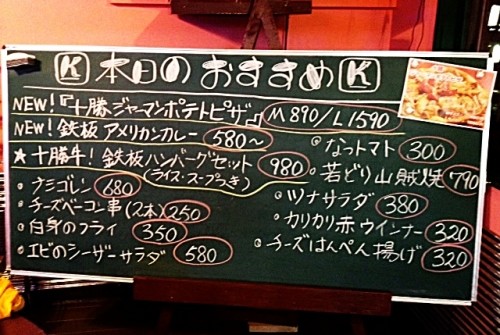 K 本日のおすすめ K
NEW!『十勝ジャーマンポテトピザ』 M890/L1590
NEW! 鉄板 アメリカンカレー 580〜
★十勝牛! 鉄板ハンバーグセット 980
(ライス・スープつき)
・ナシゴレン 680
・チーズベーコン串(2本) 250
・白身のフライ 350
・エビのシーザーサラダ 580
・なっトマト 300
・若どり山賊焼 790
・ツナサラダ 380
・カリカリ赤ウインナー 320
・チーズはんぺん揚げ 320